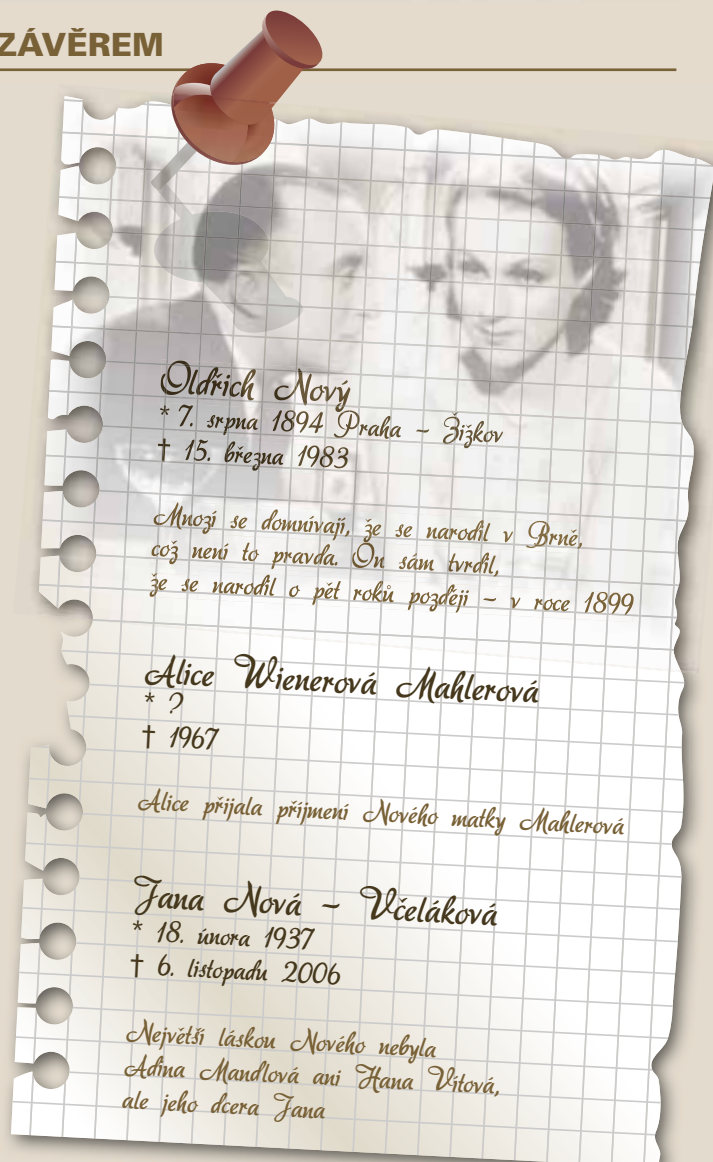 ZÁVĚREM
Oldřich Nový
* 7. srpna 1894 Praha – Žižkov
† 15. března 1983
Mnozí se domnívají, že se narodil v Brně,
což není to pravda. On sám tvrdil,
že se narodil o pět roků později – v roce 1899
Alice Wienerová Mahlerová
* ?
† 1967
Alice přijala příjmení Nového matky Mahlerová
Jana Nová – Včeláková
* 18. února 1937
† 6. listopadu 2006
Největší láskou Nového nebyla
Adina Mandlová ani Hana Vítová,
ale jeho dcera Jana